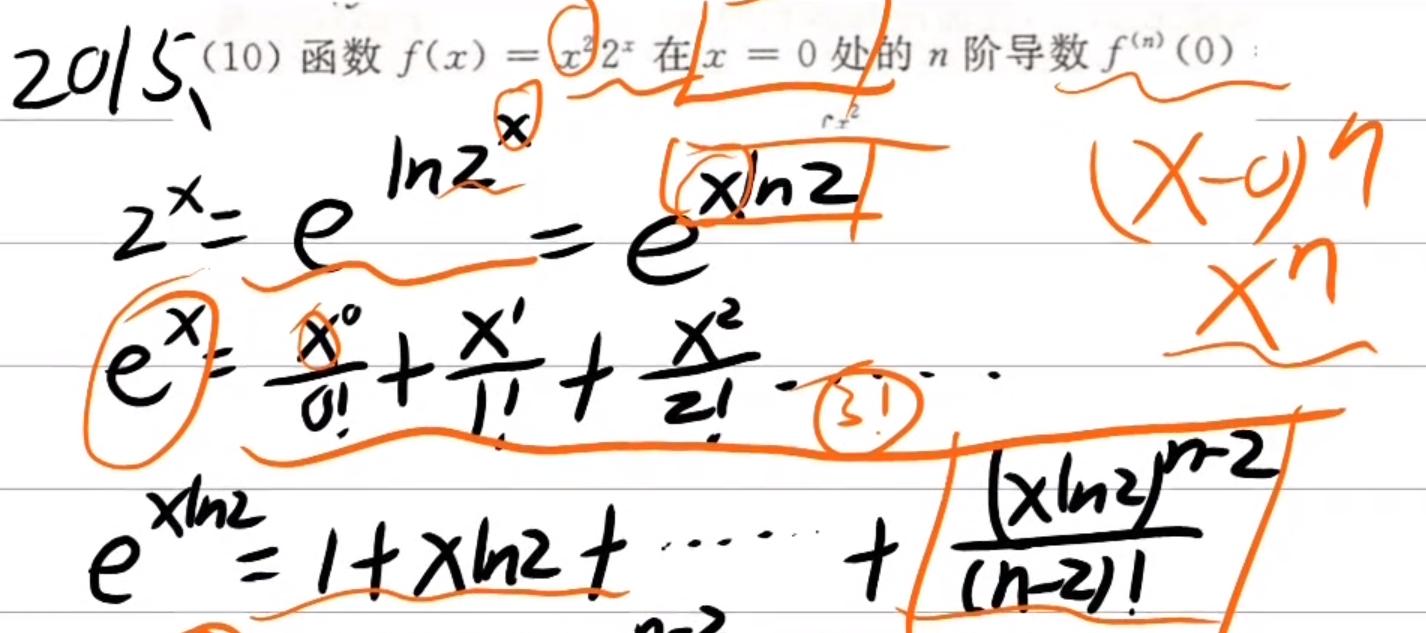 2015、(10) 函数 f(x) = x²2ˣ 在 x = 0 处的 n 阶导数 f⁽ⁿ⁾(0)
2^x = e^{ln2^x} = e^{xln2}
(x-0)^n
x^n
e^x = x^0/0! + x^1/1! + x^2/2! ······ 3!
e^{xln2} = 1 + xln2 + ······ + (xln2)^{n-2}/(n-2)!
n-2